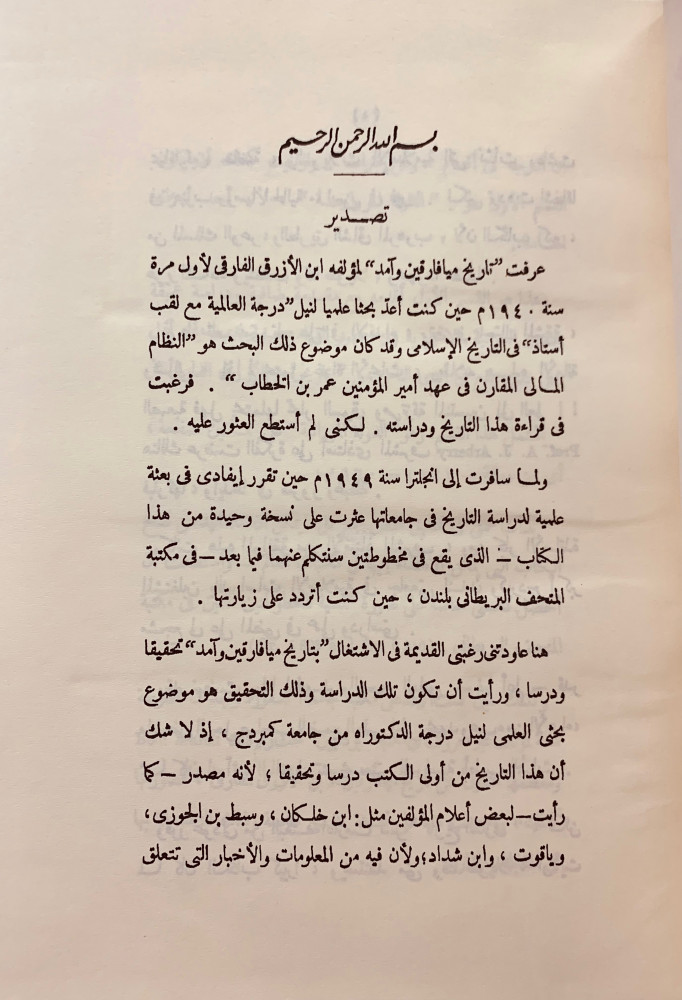 بسم الله الرحمن الرحيم
تصـــدير
عرفت "تاريخ ميافارقين وآمد" لمؤلفه ابن الأزرق الفارقى لأول مرة
سنة ١٩٤٠م حين كنت أعدّ بحثا علميا لنيل "درجة العالمية مع لقب
أستاذ" فى التاريخ الإسلامى وقد كان موضوع ذلك البحث هو "النظام
المـالى المقارن فى عهد أمير المؤمنين عمر بن الخطاب" . فرغبت
فى قراءة هذا التاريخ ودراسته . لكنى لم أستطع العثور عليه .
ولمـا سافرت إلى انجلترا سنة ١٩٤٩م حين تقرر إيفادى فى بعثة
علمية لدراسة التاريخ فى جامعاتها عثرت على نسخة وحيدة من هذا
الكتاب – الذى يقع فى مخطوطتين سنتكلم عنهما فيما بعد – فى مكتبة
المتحف البريطانى بلندن ، حين كنت أتردد على زيارتها .
هنا عاودتنى رغبتى القديمة فى الاشتغال "بتاريخ ميافارقين وآمد" تحقيقا
ودرسا ، ورأيت أن تكون تلك الدراسة وذلك التحقيق هو موضوع
بحثى العلمى لنيل درجة الدكتوراه من جامعة كمبردج ، إذ لا شك
أن هذا التاريخ من أولى الكتب درسا وتحقيقا ؛ لأنه مصدر – كما
رأيت – لبعض أعلام المؤلفين مثل : ابن خلكان ، وسبط بن الجوزى ،
وياقوت ، وابن شداد ؛ ولأن فيه من المعلومات والأخبار التى تتعلق